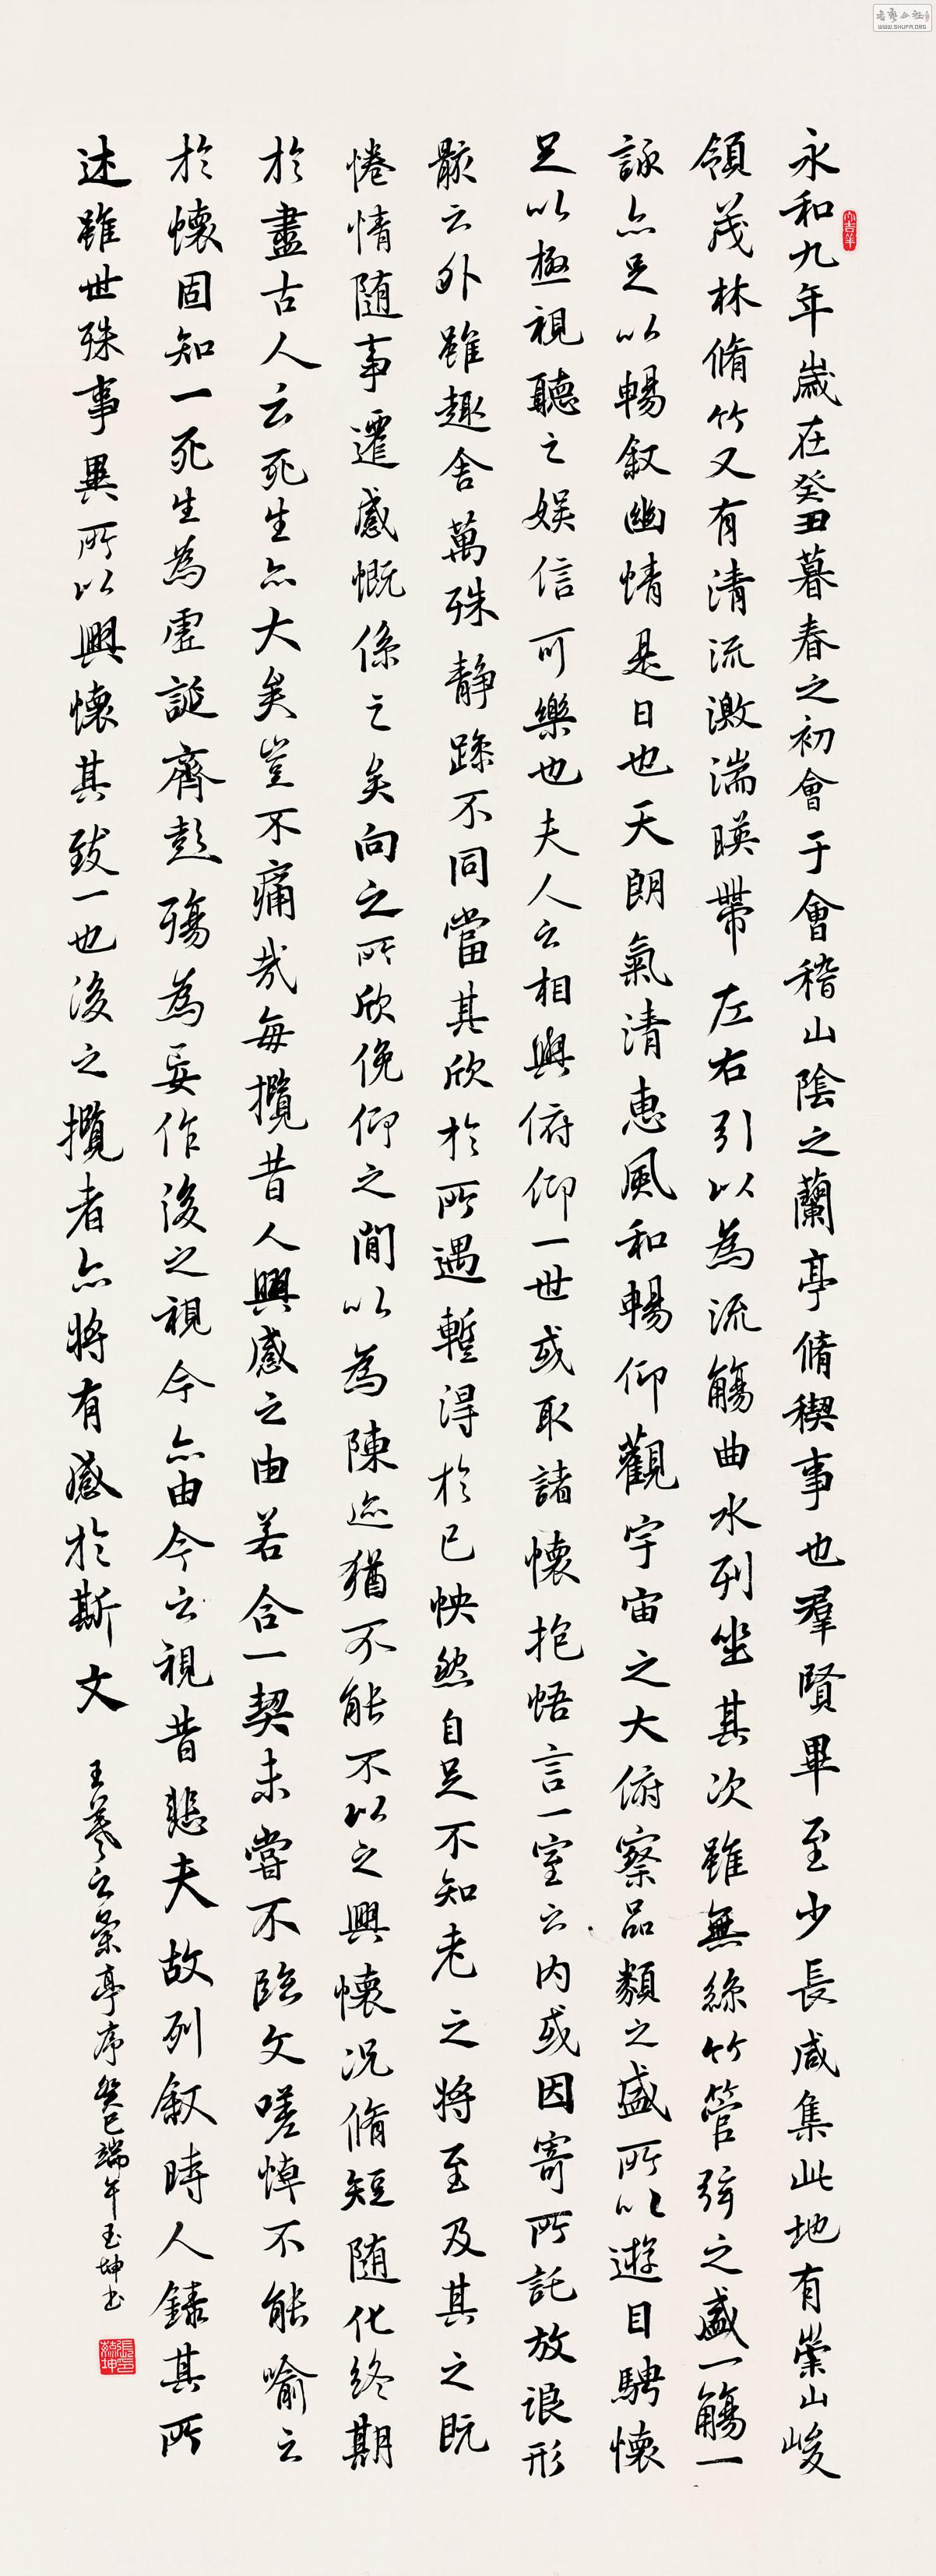 永和九年歲在癸丑暮春之初會于會稽山陰之蘭亭脩稧事也羣賢畢至少長咸集此地有崇山峻
領茂林脩竹又有清流激湍暎帶左右引以為流觴曲水列坐其次雖無絲竹管弦之盛一觴一
詠亦足以暢叙幽情是日也天朗氣清惠風和暢仰觀宇宙之大俯察品類之盛所以遊目騁懷
足以極視聽之娛信可樂也夫人之相與俯仰一世或取諸懷抱悟言一室之內或因寄所託放浪形
骸之外雖趣舍萬殊静躁不同當其欣於所遇暫得於己怏然自足不知老之將至及其之既
惓情随事遷感慨係之矣向之所欣俛仰之閒以為陳迹猶不能不以之興懷況脩短随化終期
於盡古人云死生亦大矣豈不痛哉每攬昔人興感之由若合一契未嘗不臨文嗟悼不能喻之
於懷固知一死生為虛誕齊彭殤為妄作後之視今亦由今之視昔悲夫故列叙時人錄其所
述雖世殊事異所以興懷其致一也後之攬者亦將有感於斯文
王羲之蘭亭序癸巳端午玉坤书
WWW.SHUFA.ORG